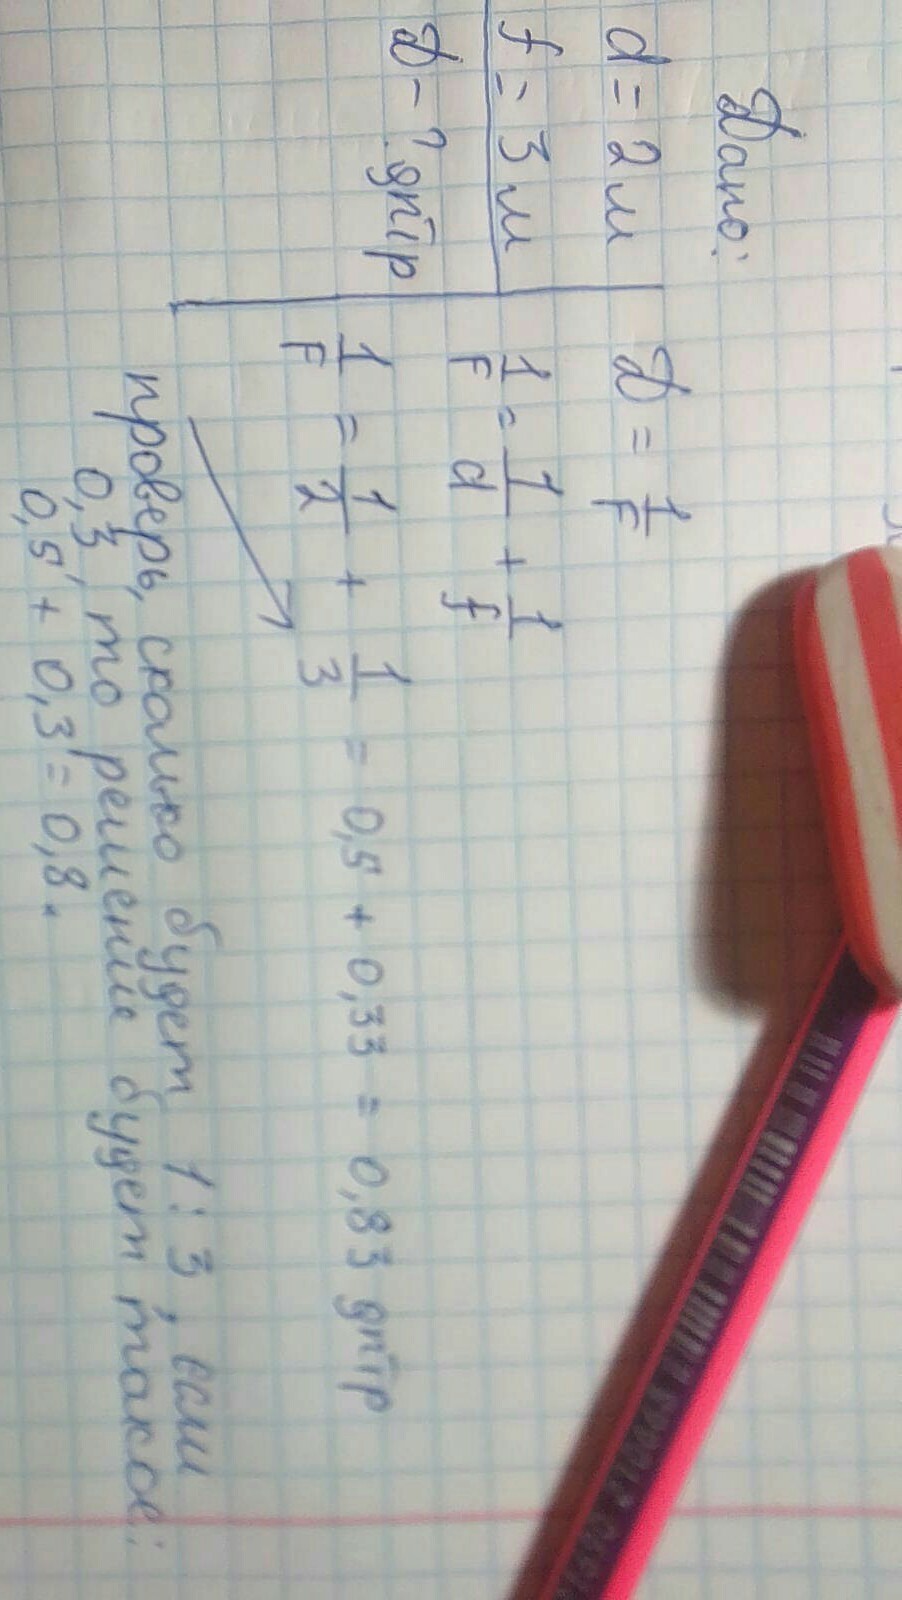 Дано:
d = 2 м
f = 3 м
D - ? дптр
D = 1/F
1/F = 1/d + 1/f
1/F = 1/2 + 1/3 = 0,5 + 0,33 = 0,83 дптр
проверь, сколько будет 1:3, если
0,3, то решение будет такое:
0,5 + 0,3 = 0,8.